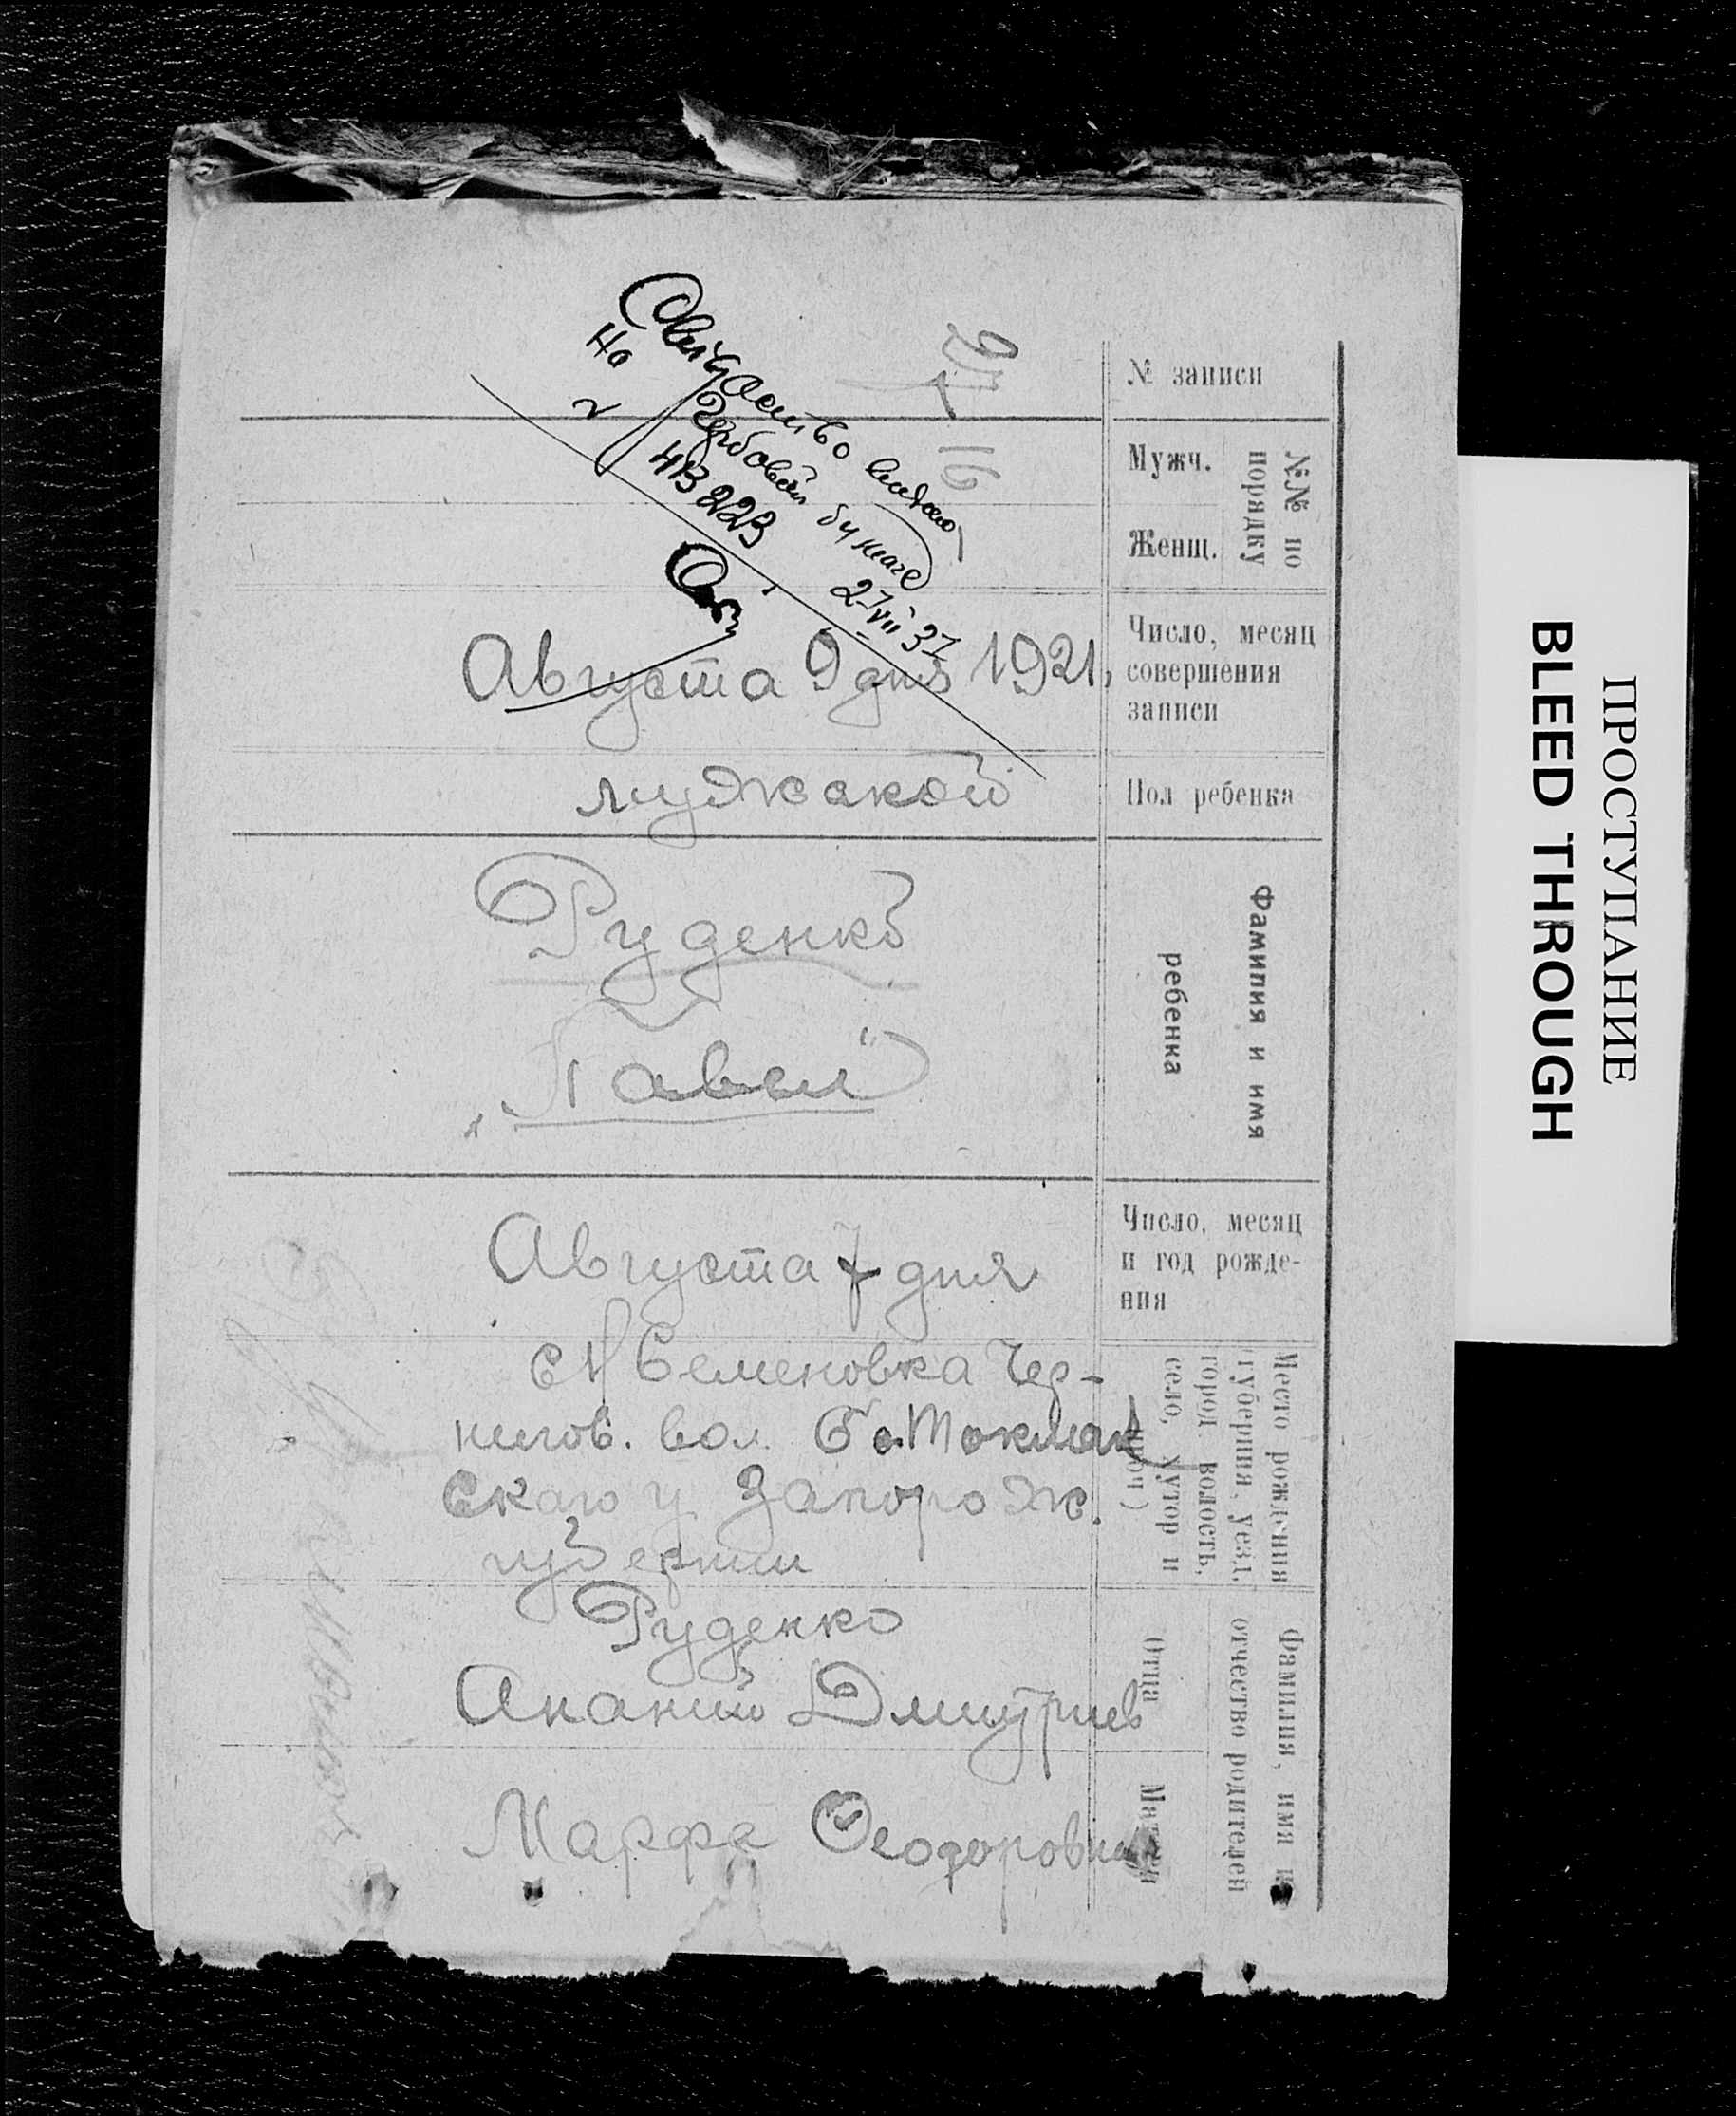 Свидетельство выдано
на гербовой бумаге
№ НВ 223 27 VII 37
№ записи
27
№№ по порядку
Мужч.
16
Женщ.
Число, месяц совершения записи
Августа 9 дня 1921,
Пол ребенка
мужской
Фамилия и имя ребенка
Руденко
„Павел"
Число, месяц и год рождения
Августа 7 дня
Место рождения
(губерния, уезд,
город волость,
село, хутор и
проч.)
с Н Семеновка Чер-
нигов. вол. Б. Токмак
скаго у Запорож.
губернии
Фамилия, имя и
отчество родителей
Отца
Руденко
Ананий Дмитриев
Матери
Марфа Феодоровна
ПРОСТУПАНИЕ
BLEED THROUGH